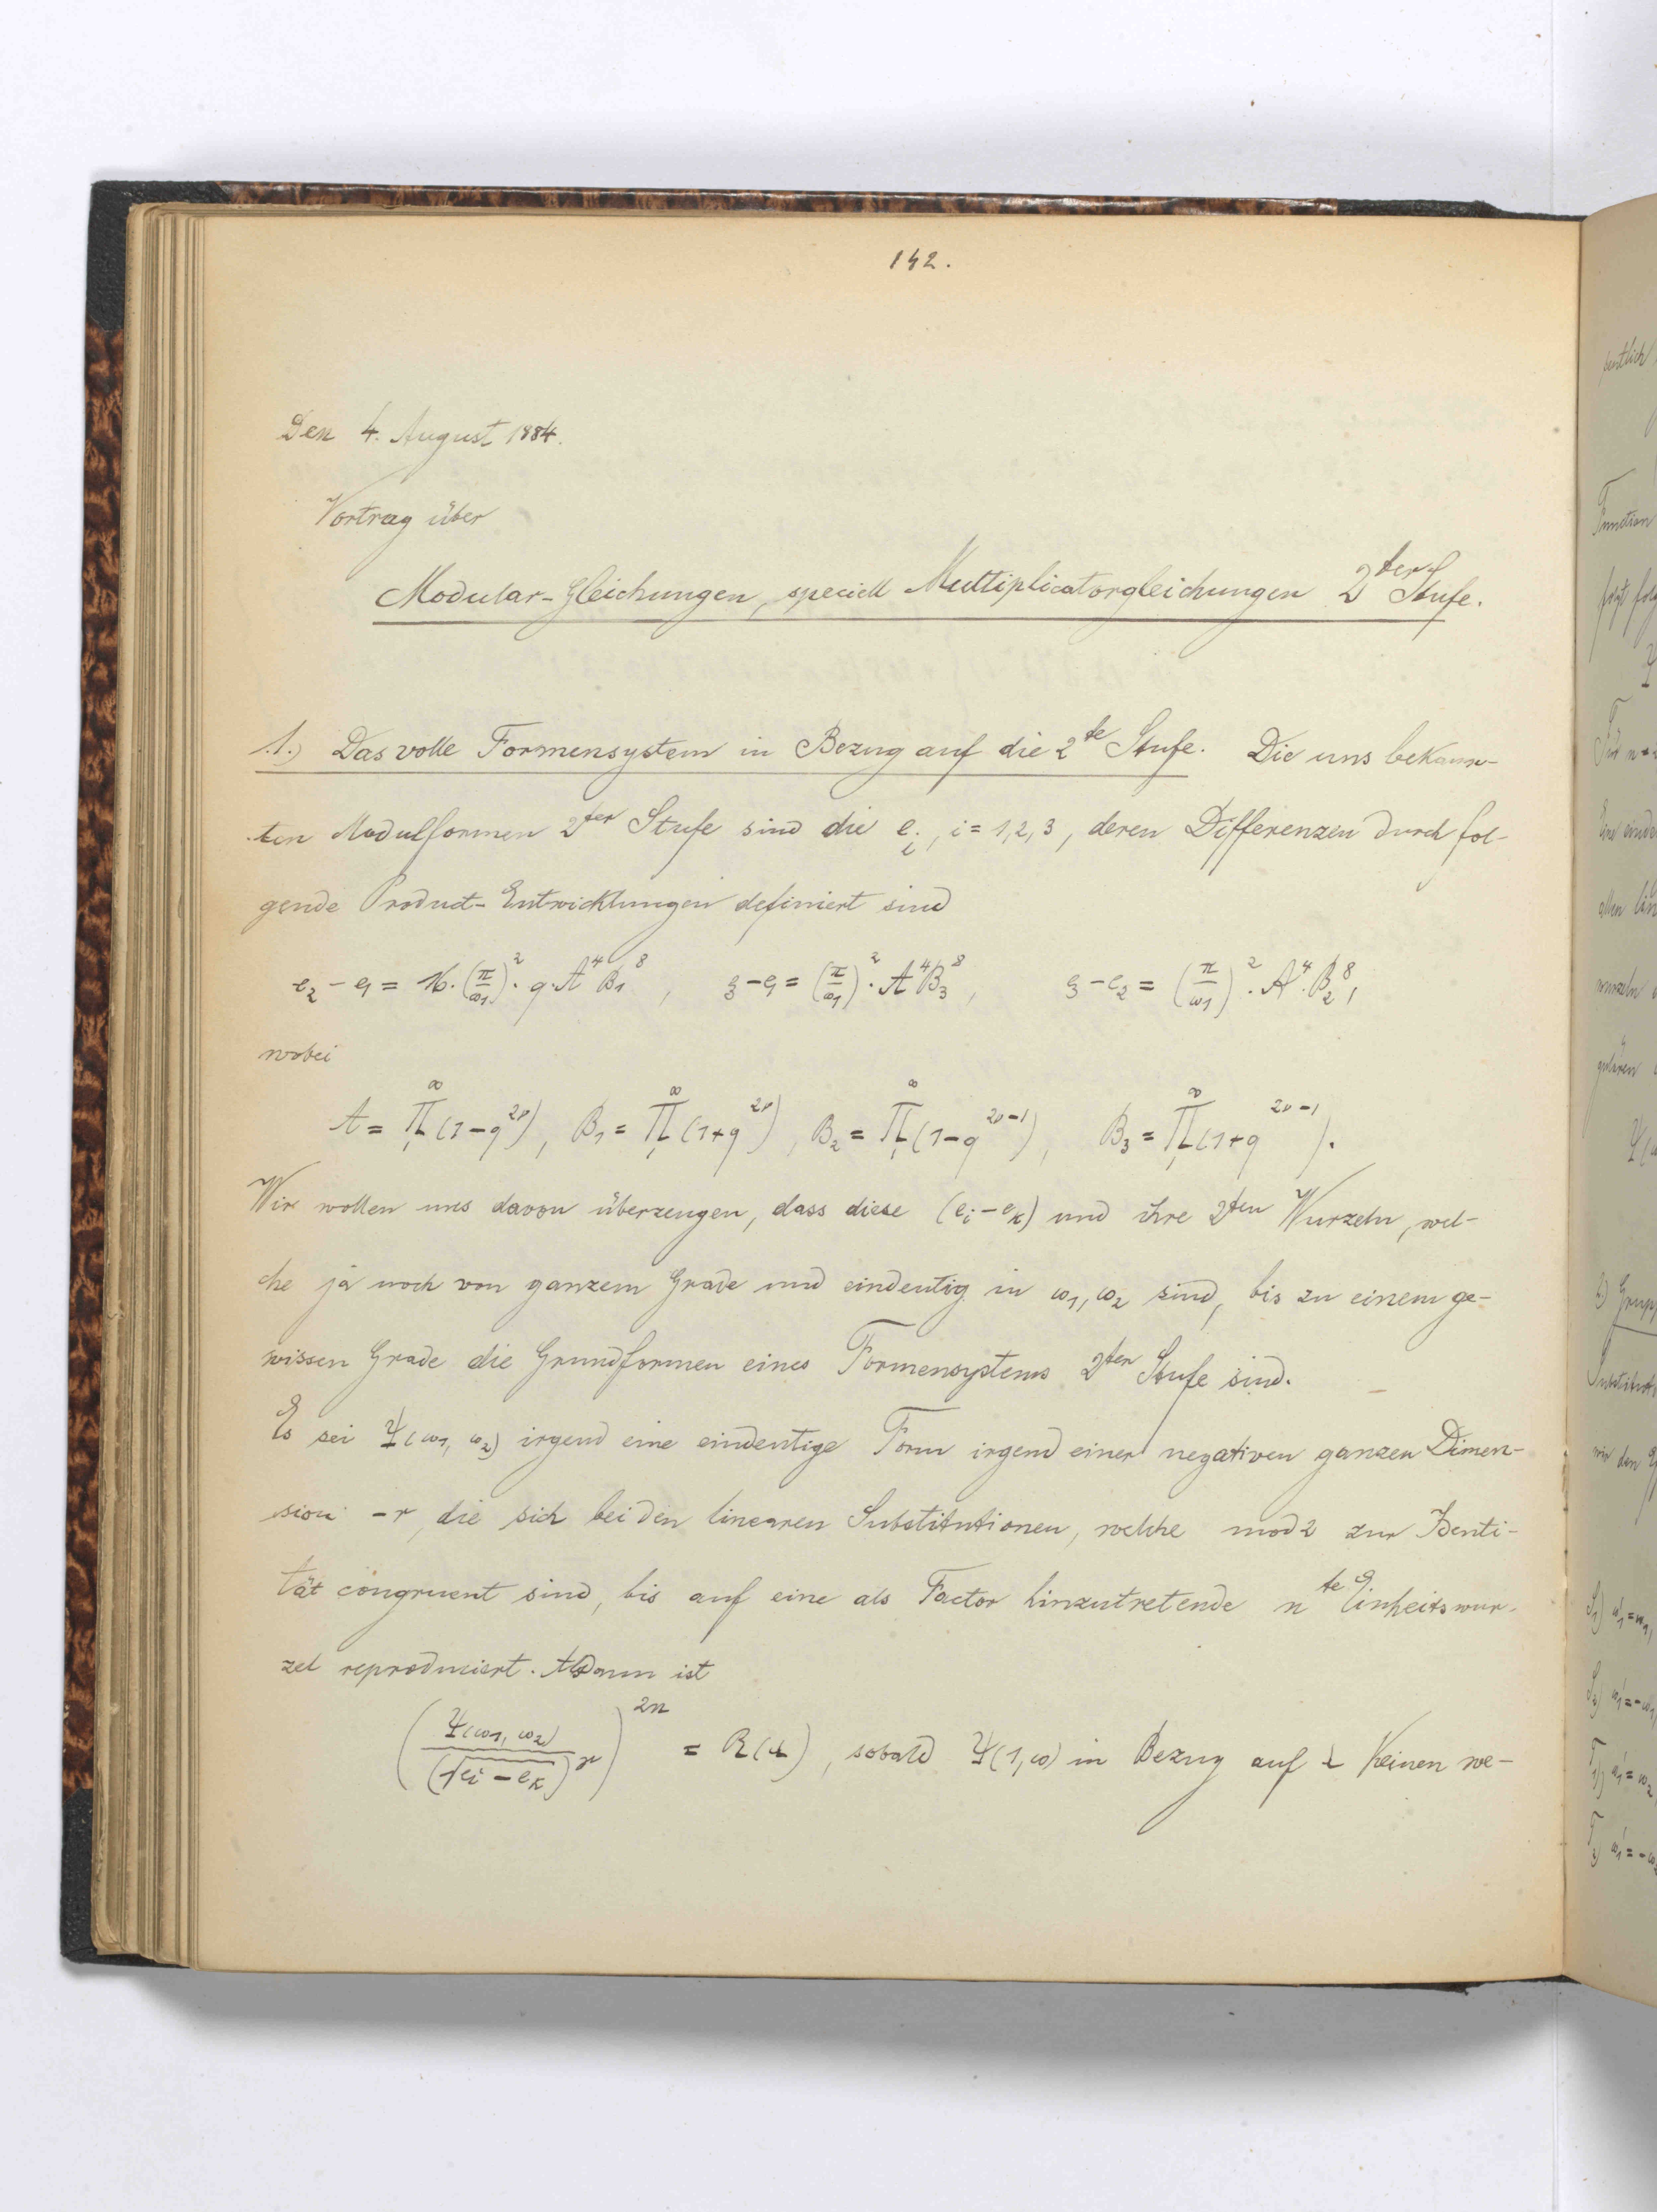 142.
Den 4. August 1884.
Vortrag über
Modular-Gleichungen, speciell Multiplicatorgleichungen 2ter Stufe.
1.) Das volle Formensystem in Bezug auf die 2te Stufe. Die uns bekann-
ten Modulformen 2ter Stufe sind die e_i, i = 1, 2, 3, deren Differenzen durch fol-
gende Product-Entwicklungen definiert sind
e_2 - e_1 = 16·(π/ω_1)^2·q·A^4 B_1^8, e_3 - e_1 = (π/ω_1)^2·A^4 B_3^8, e_3 - e_2 = (π/ω_1)^2·A^4·B_2^8,
wobei
A = ∏_1^∞ (1-q^{2ν}), B_1 = ∏_1^∞ (1+q^{2ν}), B_2 = ∏_1^∞ (1-q^{2ν-1}), B_3 = ∏_1^∞ (1+q^{2ν-1}).
Wir wollen uns davon überzeugen, dass diese (e_i - e_k) und ihre 2ten Wurzeln, wel-
che ja noch von ganzem Grade und eindeutig in ω_1, ω_2 sind, bis zu einem ge-
wissen Grade die Grundformen eines Formensystems 2ter Stufe sind. –
Es sei Ψ(ω_1, ω_2) irgend eine eindeutige Form irgend einer negativen ganzen Dimen-
sion -r, die sich bei den linearen Substitutionen, welche mod 2 zur Identi-
tät congruent sind, bis auf eine als Factor hinzutretende nte Einheitswur-
zel reproduciert. Alsdann ist
(Ψ(ω_1, ω_2) / (√e_i - e_k)^r)^{2n} = R(λ), sobald Ψ(1, ω) in Bezug auf λ keinen we-